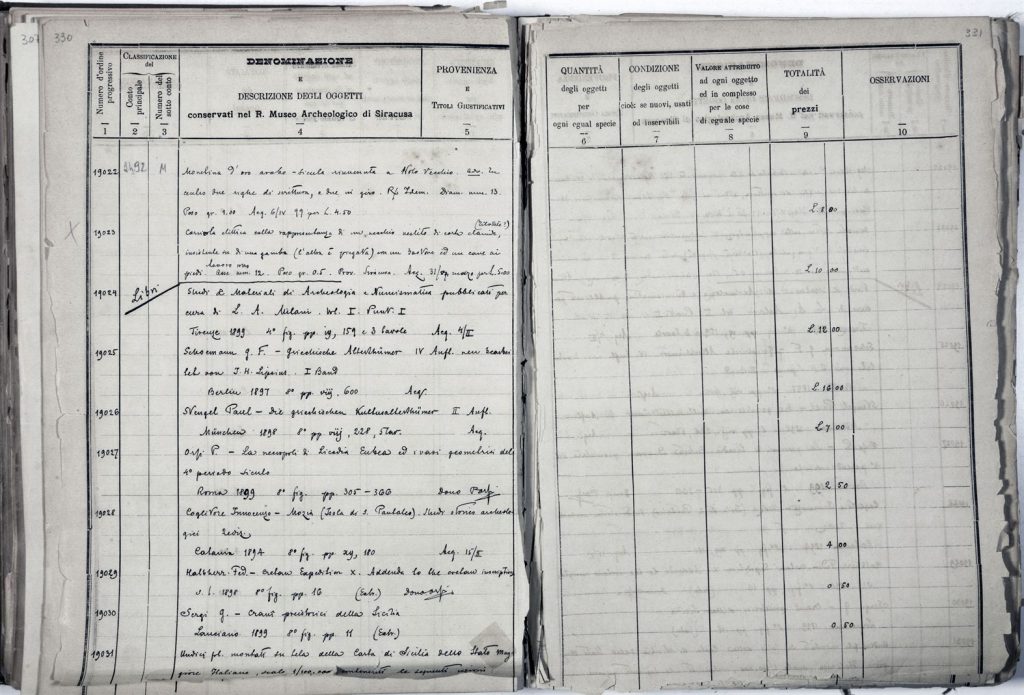 307 330
Numero d'ordine progressivo
CLASSIFICAZIONE
del
Conto principale
Numero del sotto conto
DENOMINAZIONE
E
DESCRIZIONE DEGLI OGGETTI
conservati nel R. Museo Archeologico di Siracusa
PROVENIENZA
E
TITOLI GIUSTIFICATIVI
1 2 3 4 5
19022 M Monetina d'oro arabo-sicula rinvenuta a Noto Vecchio. In
centro due righe di scrittura, e due in giro. R) Idem. Diam. mm. 13.
Peso gr. Acq. 6/IV 99 per L. 4.50
19023 Corniola ellittica colla rappresentanza di un vecchio vestito di corta clamide,
di una gamba (l'altra è piegata) con un bastone ed un cane ai
piedi. Asse mm. 12. Peso gr. 0.5. Prov. Siracusa. Acq. marzo per L. 5.00
19024 Libri Studi e Materiali di Archeologia e Numismatica pubblicati per
cura di L. A. Milani. Vol. I. Punt. I
Firenze 1899 4° fig. pp. 159 e 3 tavole Acq. 4/II
19025 Schoemann G. F. – Griechische Alterthümer IV Aufl. neu bearbei
tet von J. H. Lipsius. I Band
Berlin 1897 8° pp. viij, 600 Acq.
19026 Stengel Paul – Die griechischen Kultusalterthümer II Aufl.
München 1898 8° pp. viij, 228, 5 tav. Acq.
19027 Orsi P. – La necropoli di Licodia Eubea ed i vasi geometrici del
4° periodo siculo
Roma 1899 8° fig. pp. 305 – 366 Dono Orsi
19028 Coglitore Innocenzo – Mozia (Isola di S. Pantaleo). Studi storico archeolo
gici 2 ediz.
Catania 1894 8° fig. pp. xy, 180 Acq. 15/II
19029 Halbherr Fed. – Cretan Expedition X. Addenda to the cretan inscriptions
s. l. 1898 8° fig. pp. 16 (Estr.) Dono Orsi
19030 Sergi G. – Crani preistorici della Sicilia
Lanciano 1899 8° fig. pp. 11 (Estr.)
19031 Undici fol. montati su tela della Carta di Sicilia dello Stato Mag
giore Italiano, scala 1/100,000 contenenti le seguenti
331
QUANTITÀ
degli oggetti
per
ogni egual specie
CONDIZIONE
degli oggetti
cioè: se nuovi, usati
od inservibili
VALORE ATTRIBUITO
ad ogni oggetto
ed in complesso
per le cose
di eguale specie
TOTALITÀ
dei
prezzi
OSSERVAZIONI
6 7 8 9 10
L. 8 00
L. 10 00
L. 12 00
L. 16 00
L. 7 00
2 50
4 00
0 50
0 50